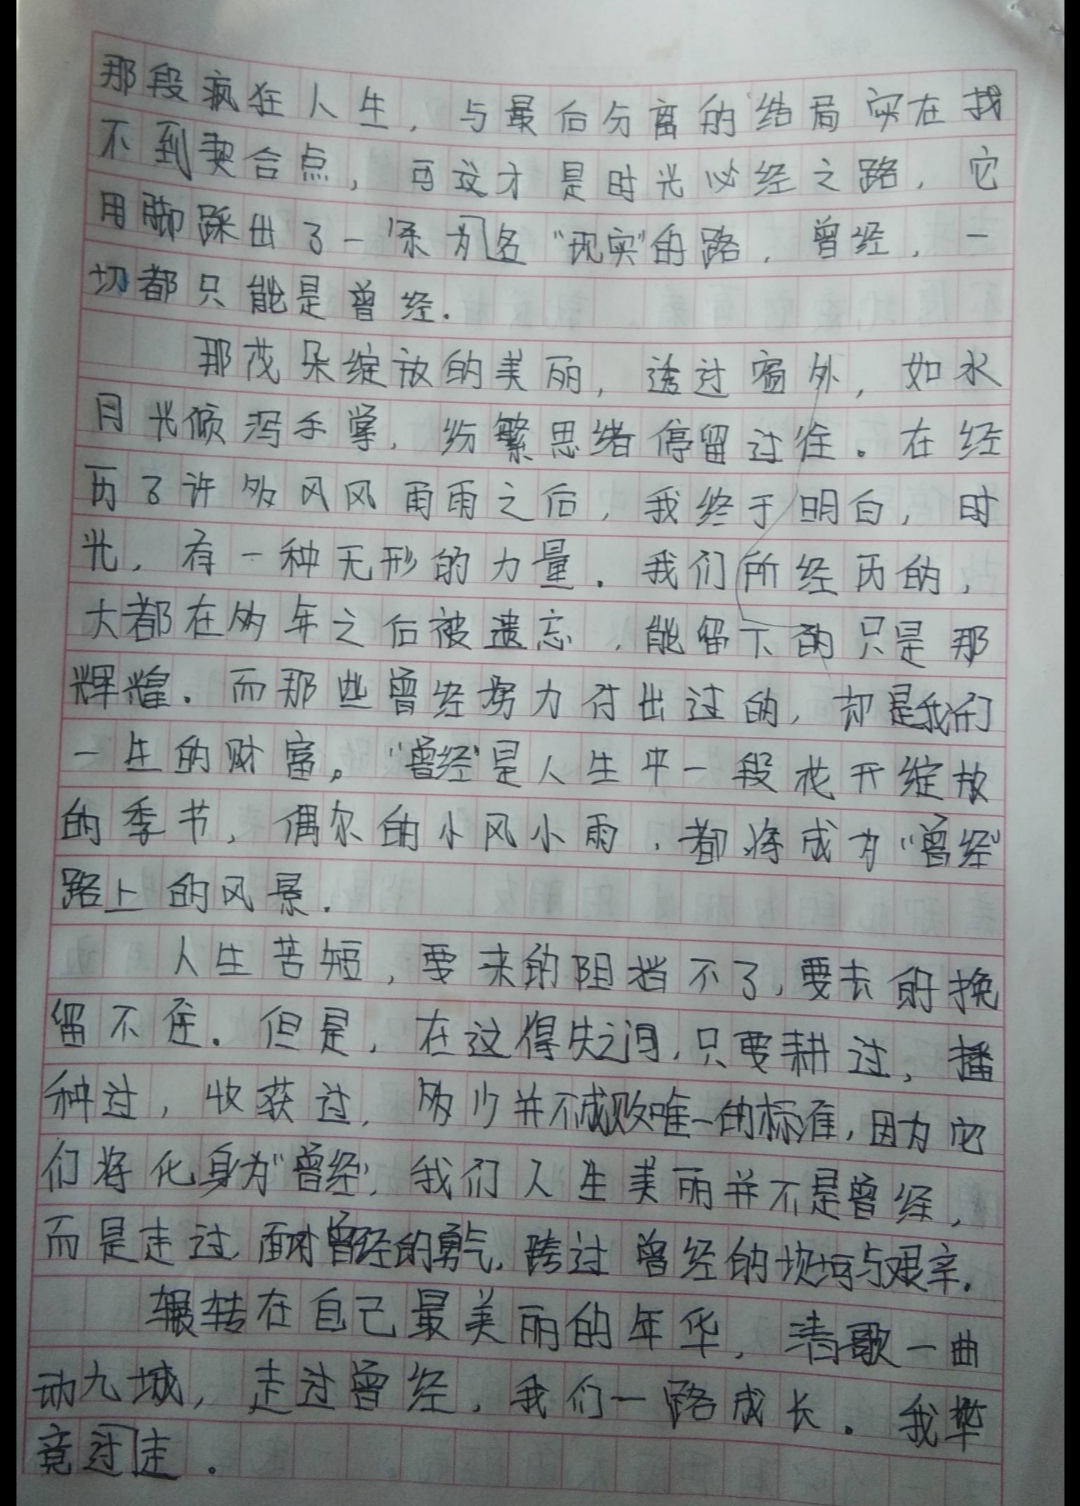 那段疯狂人生，与最后分离的结局实在找
不到契合点，可这才是时光必经之路，它
用脚踩出了一条为名“现实”的路，曾经，一
切都只能是曾经.
那茂朵绽放的美丽，透过窗外，如水
月光倾泻手掌，纷繁思绪停留过往。在经
历了许多风风雨雨之后，我终于明白，时
光，有一种无形的力量.我们所经历的，
大都在多年之后被遗忘，能留下的只是那
辉煌.而那些曾经努力付出过的，却是我们
一生的财富。“曾经”是人生中一段花开绽放
的季节，偶尔的小风小雨，都将成为“曾经”
路上的风景.
人生苦短，要来的阻挡不了，要去的挽
留不住.但是，在这得失之间，只要耕过，播
种过，收获过，多少并不成败唯一的标准，因为它
们将化身为“曾经”，我们人生美丽并不是曾经，
而是走过面对曾经的勇气，跨过曾经的坎坷与艰辛.
辗转在自己最美丽的年华，清歌一曲
动九城，走过曾经，我们一路成长。我毕
竟过走.